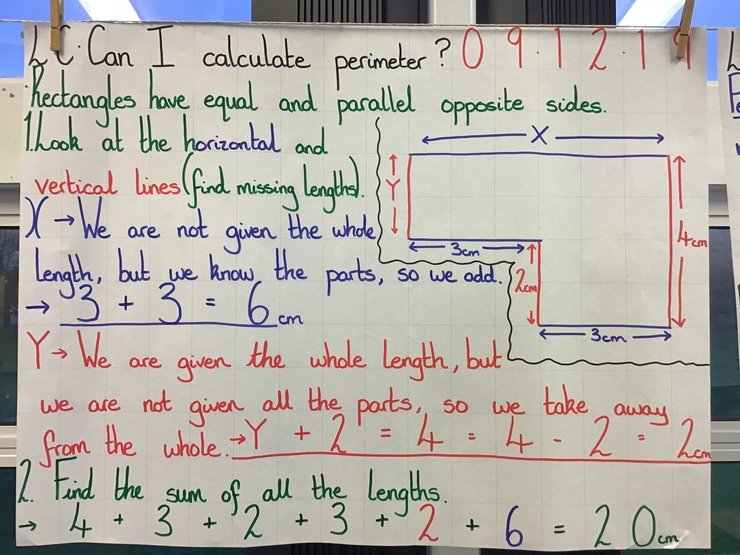 LC: Can I calculate perimeter? 09.12.19
Rectangles have equal and parallel opposite sides.
1. Look at the horizontal and
vertical lines (find missing lengths).
X → We are not given the whole
length, but we know the parts, so we add.
→ 3 + 3 = 6cm
X
Y
4cm
3cm
2cm
3cm
Y → We are given the whole length, but
we are not given all the parts, so we take away
from the whole. → Y + 2 = 4 = 4 - 2 = 2cm
2. Find the sum of all the lengths.
→ 4 + 3 + 2 + 3 + 2 + 6 = 20cm